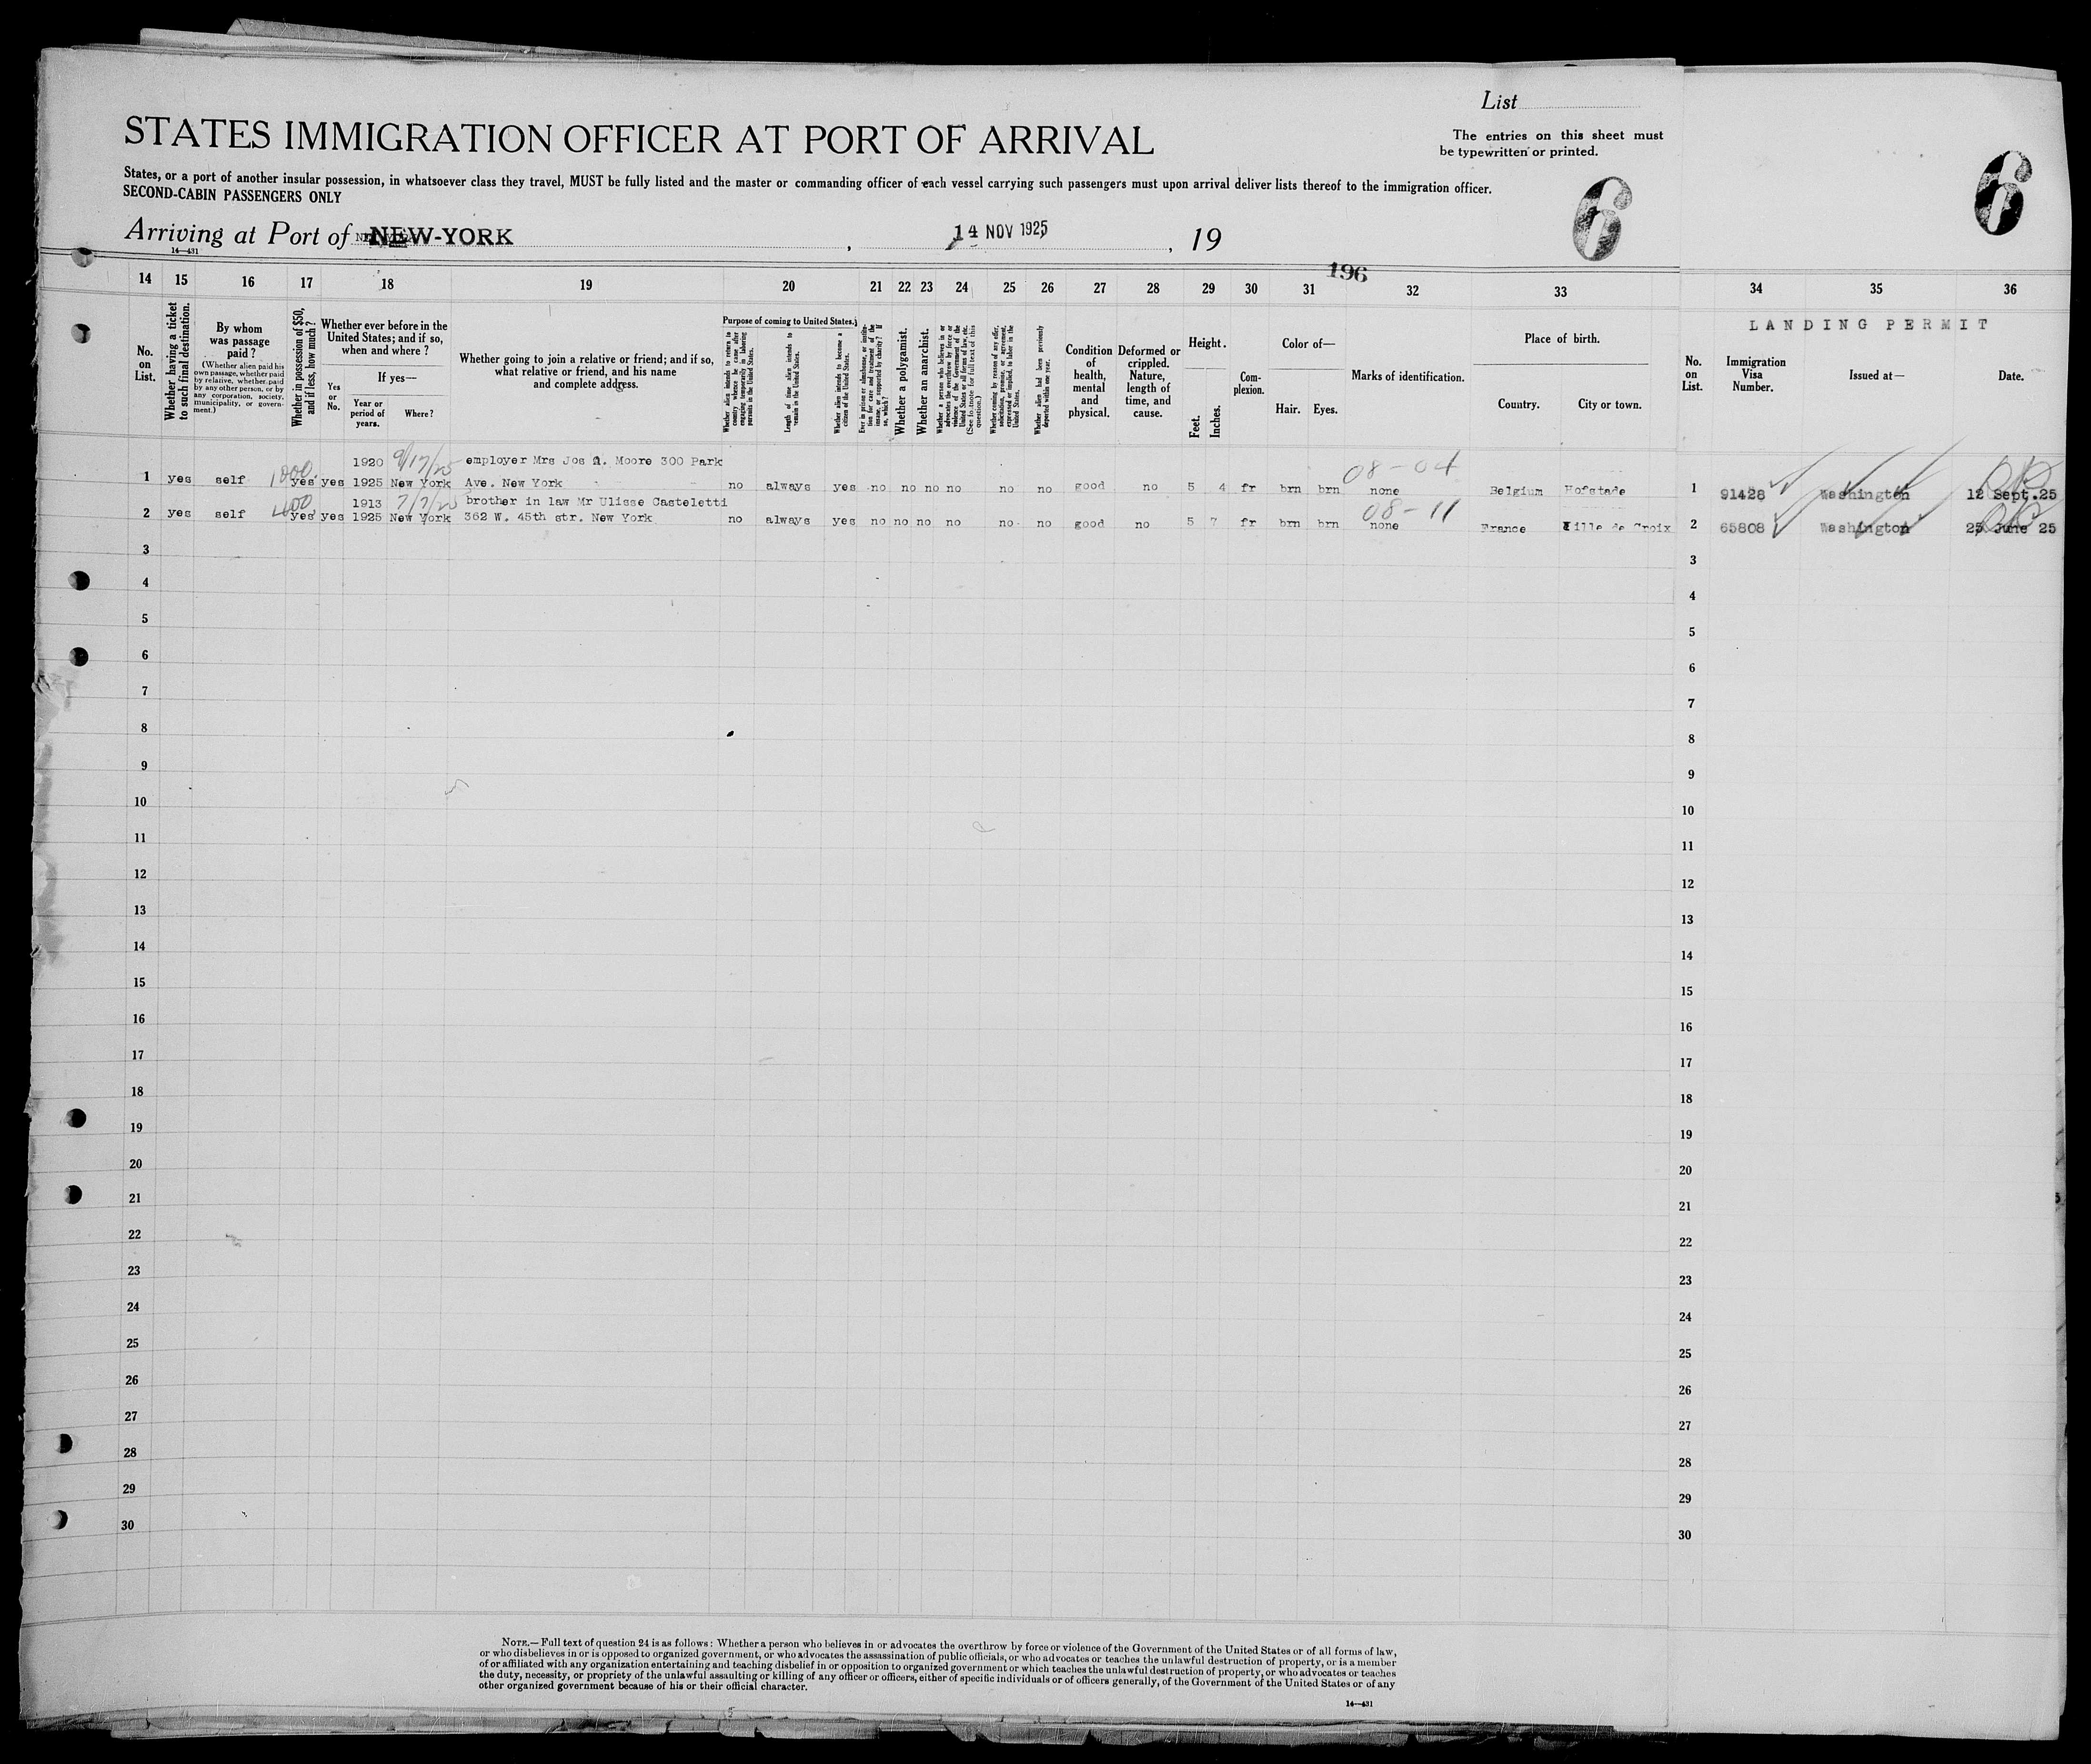 List
STATES IMMIGRATION OFFICER AT PORT OF ARRIVAL
The entries on this sheet must
be typewritten or printed.
States, or a port of another insular possession, in whatsoever class they travel, MUST be fully listed and the master or commanding officer of each vessel carrying such passengers must upon arrival deliver lists thereof to the immigration officer.
SECOND-CABIN PASSENGERS ONLY
6
6
Arriving at Port of NEW-YORK , 14 NOV 1925 , 19
14—431
196
14 15 16 17 18 19 20 21 22 23 24 25 26 27 28 29 30 31 32 33 34 35 36
LANDING PERMIT
No. on List.
Whether having a ticket to such final destination.
By whom was passage paid?
(Whether alien paid his own passage, whether paid by relative, whether paid by any other person, or by any corporation, society, municipality, or government.)
Whether in possession of $50, and if less, how much?
Whether ever before in the United States; and if so, when and where?
Yes or No.
If yes—
Year or period of years.
Where?
Whether going to join a relative or friend; and if so, what relative or friend, and his name and complete address.
Purpose of coming to United States.
Whether alien intends to return to country whence he came after engaging temporarily in laboring pursuits in the United States.
Length of time alien intends to remain in the United States.
Whether alien intends to become a citizen of the United States.
Ever in prison or almshouse, or institution for care and treatment of the insane, or supported by charity? If so, which?
Whether a polygamist.
Whether an anarchist.
Whether a person who believes in or advocates the overthrow by force or violence of the Government of the United States or all forms of law, etc. (See footnote for full text of this question.)
Whether coming by reason of any offer, solicitation, promise, or agreement, expressed or implied, to labor in the United States.
Whether alien had been previously deported within one year.
Condition of health, mental and physical.
Deformed or crippled. Nature, length of time, and cause.
Height.
Feet.
Inches.
Complexion.
Color of—
Hair. Eyes.
Marks of identification.
Place of birth.
Country. City or town.
No. on List.
Immigration Visa Number.
Issued at—
Date.
1920 9/17/25 employer Mrs Jos A. Moore 300 Park 08-04
1 yes self 1000 yes yes 1925 New York Ave. New York no always yes no no no no no no good no 5 4 fr brn brn none Belgium Hofstade 1 91428 Washington 12 Sept. 25
1913 7/7/25 brother in law Mr Ulisse Casteletti 08-11
2 yes self 400 yes yes 1925 New York 362 W. 45th str. New York no always yes no no no no no no good no 5 7 fr brn brn none France de Croix 2 65808 Washington June 25
3 3
4 4
5 5
6 6
7 7
8 8
9 9
10 10
11 11
12 12
13 13
14 14
15 15
16 16
17 17
18 18
19 19
20 20
21 21
22 22
23 23
24 24
25 25
26 26
27 27
28 28
29 29
30 30
NOTE.—Full text of question 24 is as follows: Whether a person who believes in or advocates the overthrow by force or violence of the Government of the United States or of all forms of law,
or who disbelieves in or is opposed to organized government, or who advocates the assassination of public officials, or who advocates or teaches the unlawful destruction of property, or is a member
of or affiliated with any organization entertaining and teaching disbelief in or opposition to organized government or which teaches the unlawful destruction of property, or who advocates or teaches
the duty, necessity, or propriety of the unlawful assaulting or killing of any officer or officers, either of specific individuals or of officers generally, of the Government of the United States or of any
other organized government because of his or their official character.
14—431